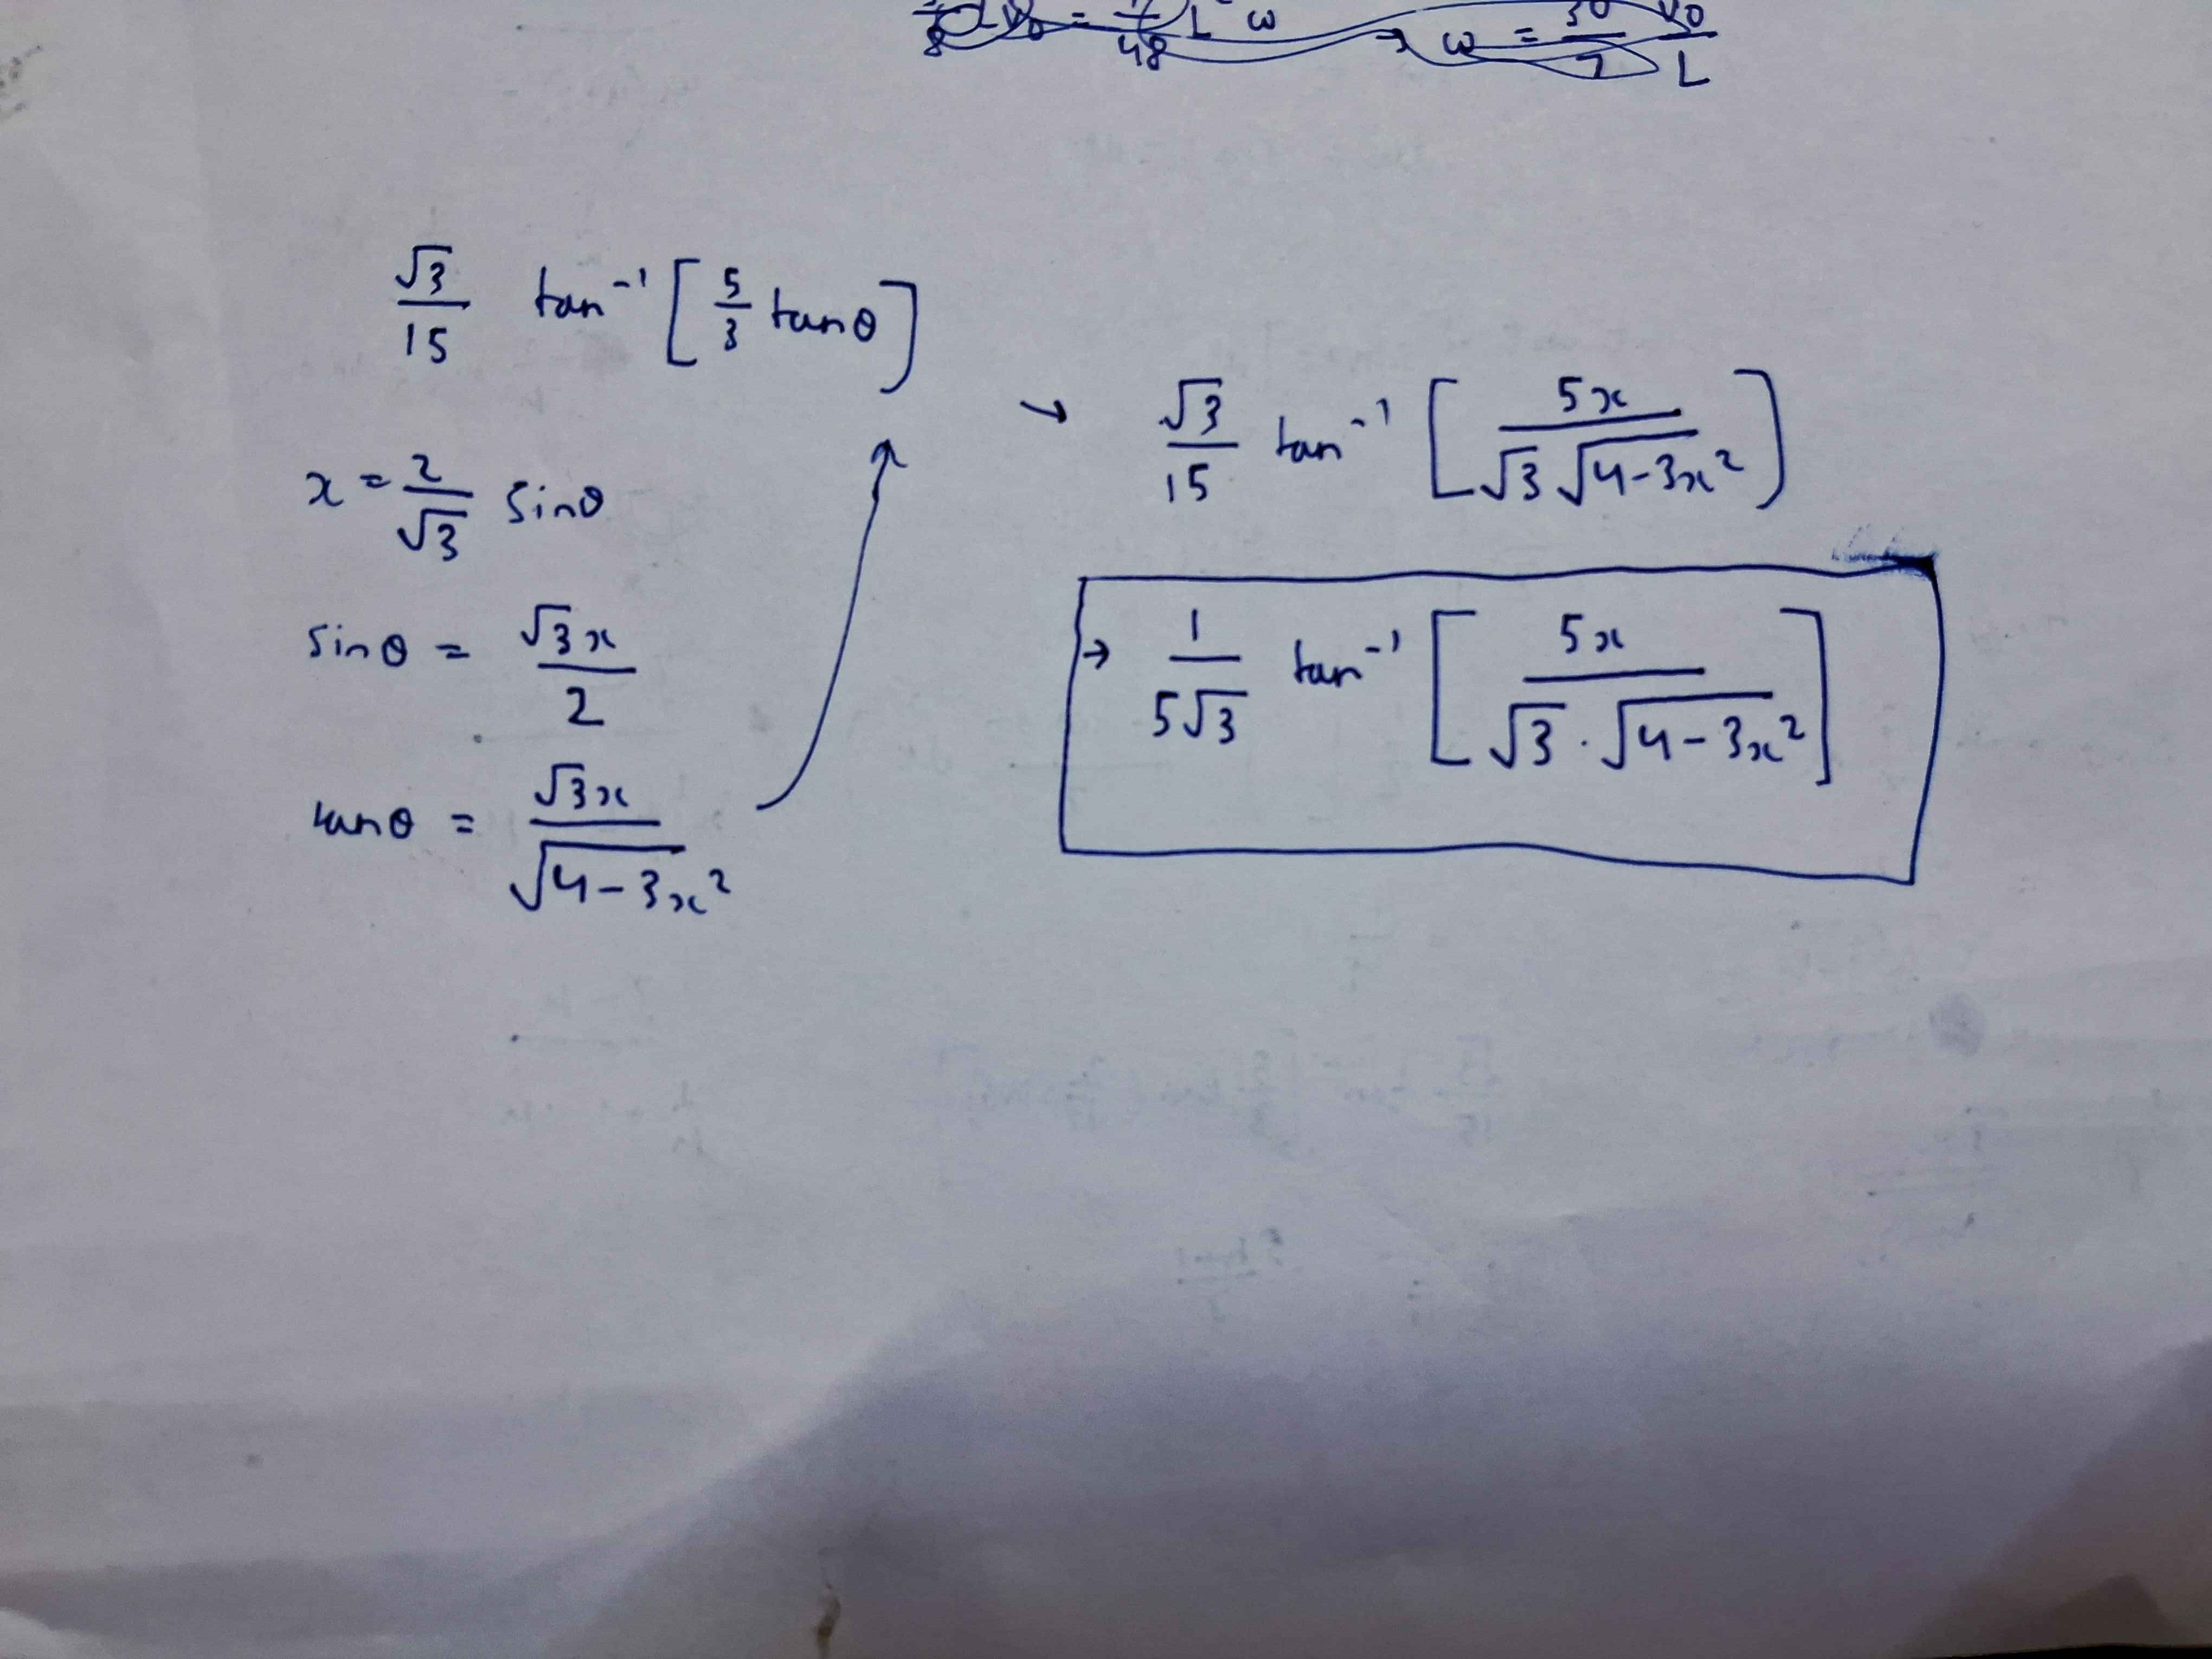 48 L ω → ω = 30/7 v0/L
√3/15 tan⁻¹ [5/3 tanθ]
x = 2/√3 sinθ
sinθ = √3x/2
tanθ = √3x/√4-3x²
→ √3/15 tan⁻¹ [5x/√3 √4-3x²]
→ 1/5√3 tan⁻¹ [5x/√3 . √4-3x²]